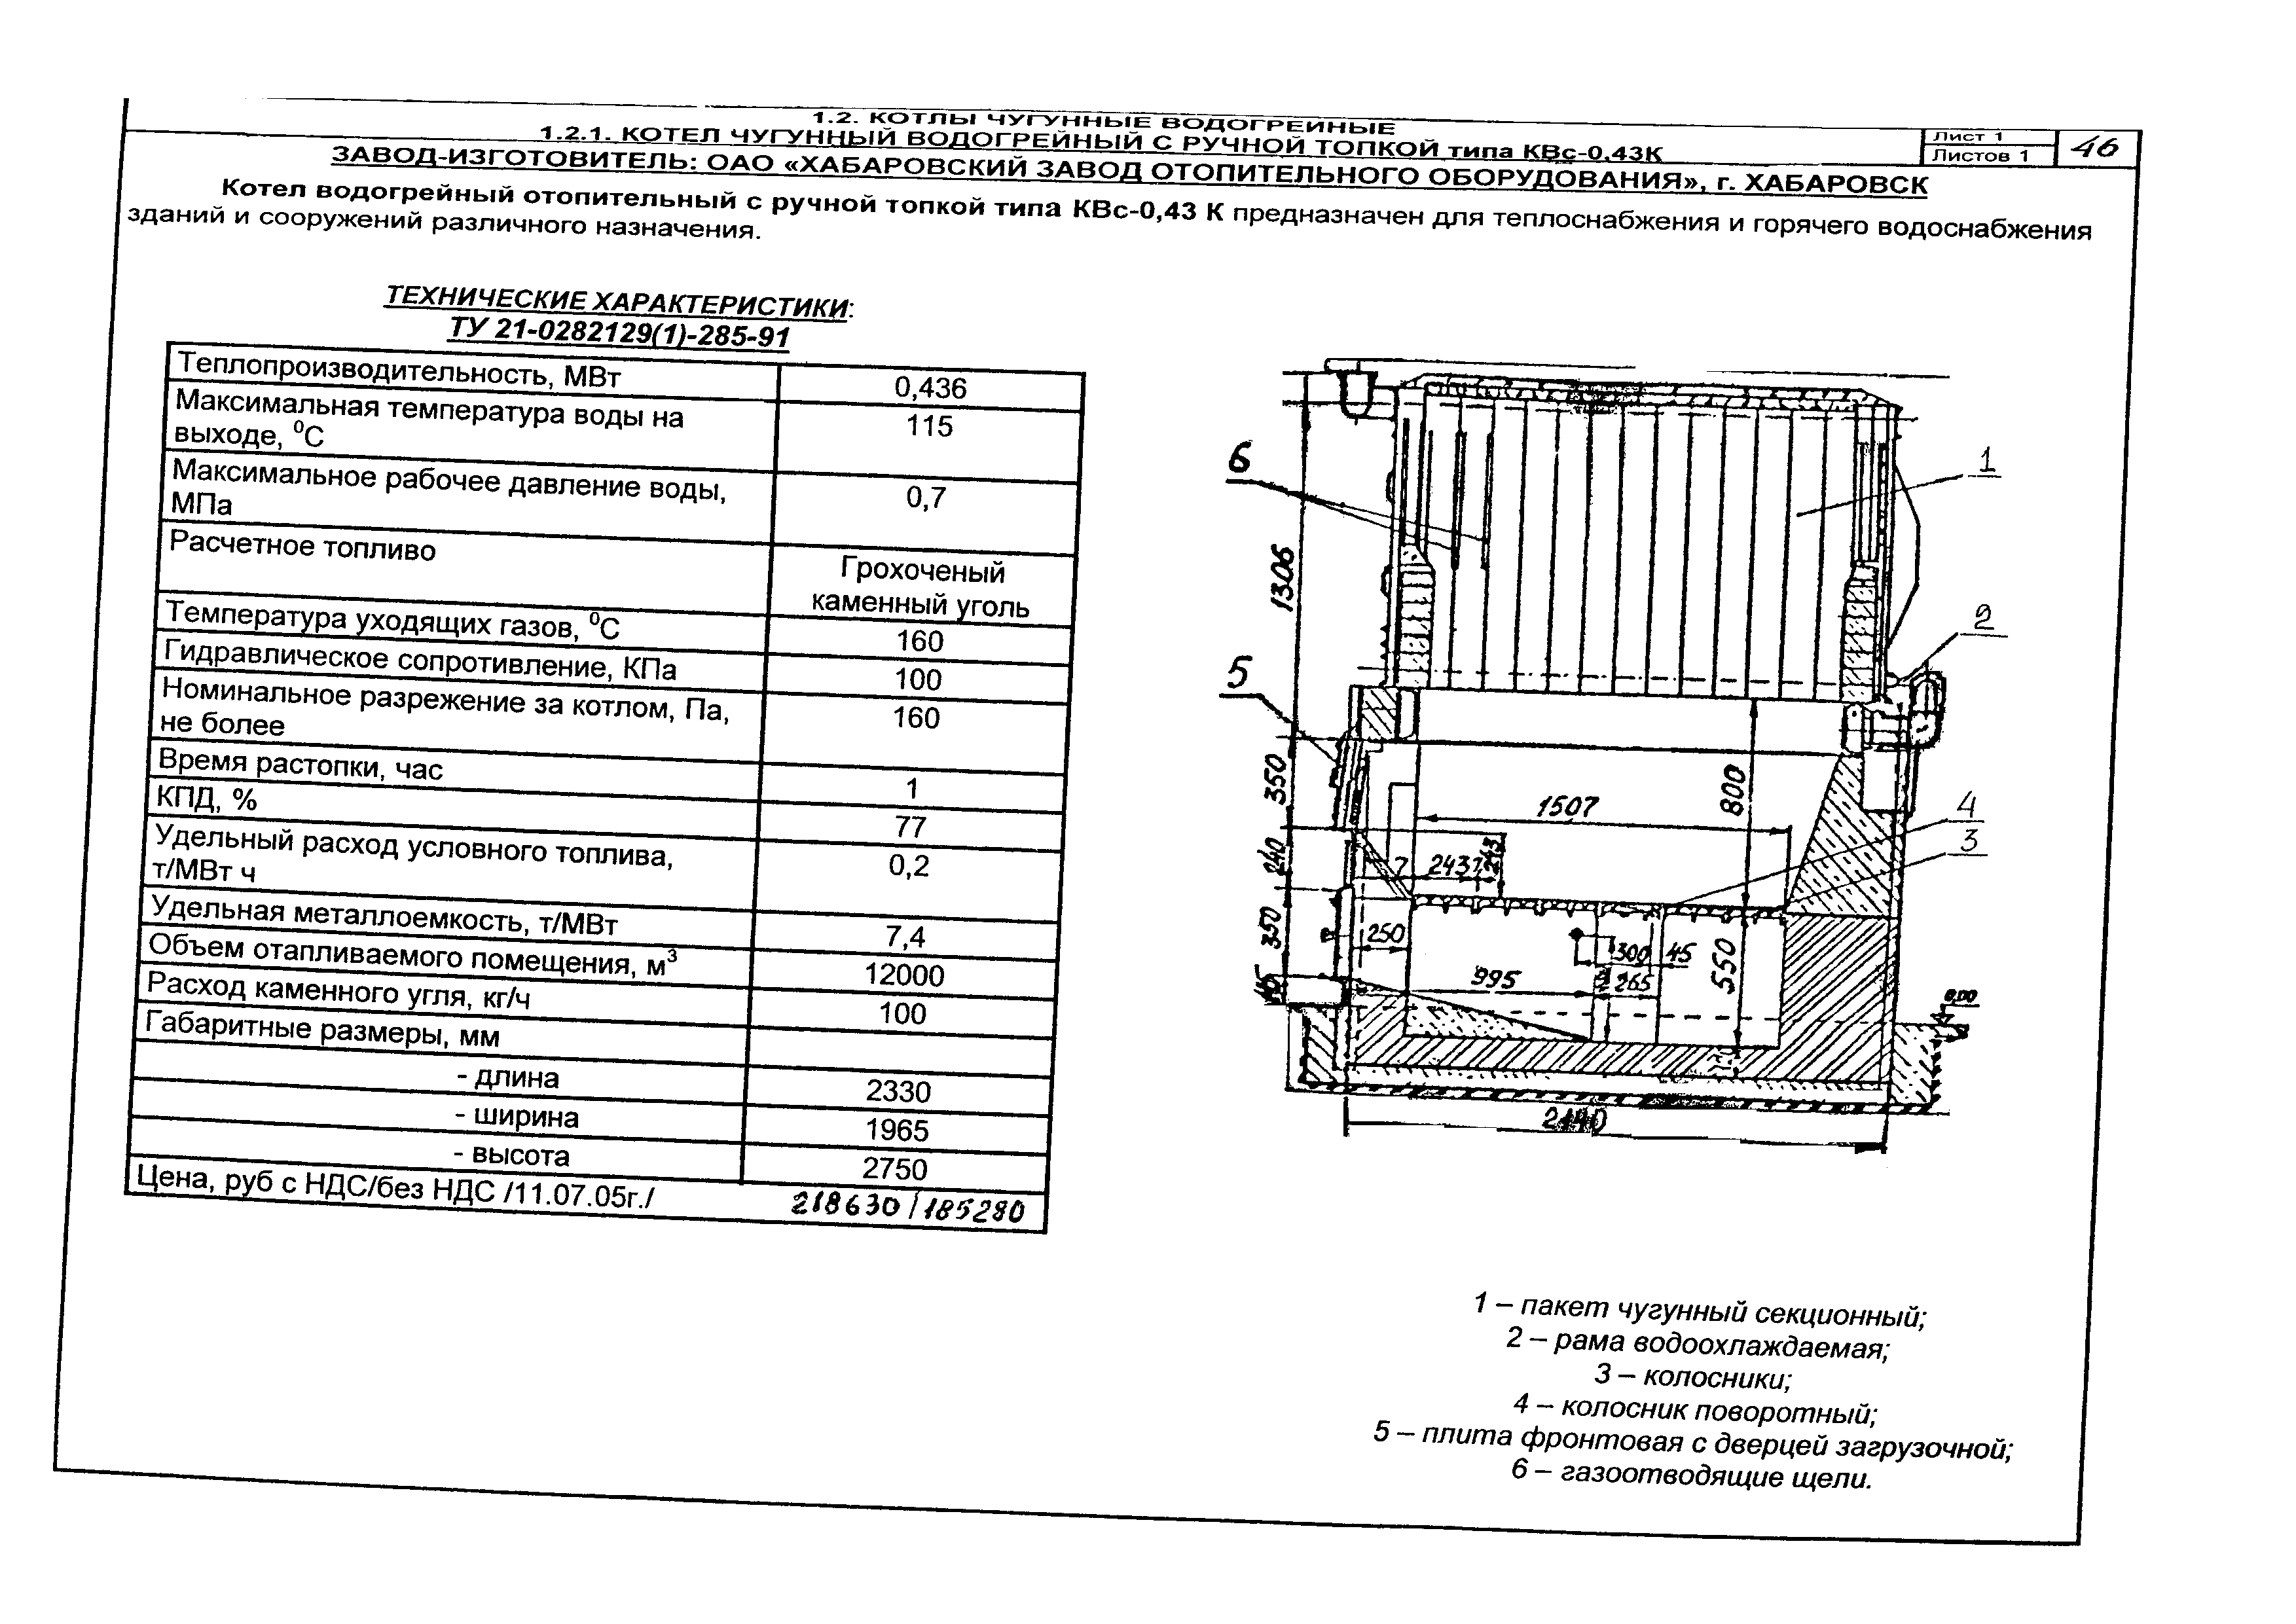 1.2. КОТЛЫ ЧУГУННЫЕ ВОДОГРЕЙНЫЕ
1.2.1. КОТЕЛ ЧУГУННЫЙ ВОДОГРЕЙНЫЙ С РУЧНОЙ ТОПКОЙ типа КВс-0,43К
Лист 1
Листов 1
46
ЗАВОД-ИЗГОТОВИТЕЛЬ: ОАО «ХАБАРОВСКИЙ ЗАВОД ОТОПИТЕЛЬНОГО ОБОРУДОВАНИЯ», г. ХАБАРОВСК
Котел водогрейный отопительный с ручной топкой типа КВс-0,43 К предназначен для теплоснабжения и горячего водоснабжения
зданий и сооружений различного назначения.
ТЕХНИЧЕСКИЕ ХАРАКТЕРИСТИКИ:
ТУ 21-0282129(1)-285-91
Теплопроизводительность, МВт 0,436
Максимальная температура воды на 115
выходе, ⁰С
Максимальное рабочее давление воды, 0,7
МПа
Расчетное топливо Грохоченый
каменный уголь
Температура уходящих газов, ⁰С 160
Гидравлическое сопротивление, КПа 100
Номинальное разрежение за котлом, Па, 160
не более
Время растопки, час 1
КПД, % 77
Удельный расход условного топлива, 0,2
т/МВт ч
Удельная металлоемкость, т/МВт 7,4
Объем отапливаемого помещения, м³ 12000
Расход каменного угля, кг/ч 100
Габаритные размеры, мм
- длина 2330
- ширина 1965
- высота 2750
Цена, руб с НДС/без НДС /11.07.05г./ 218630/185280
6
1
1306
2
5
350
800
1507
4
3
240
7
243
243
350
250
300
45
550
995
265
0,00
2140
1 – пакет чугунный секционный;
2 – рама водоохлаждаемая;
3 – колосники;
4 – колосник поворотный;
5 – плита фронтовая с дверцей загрузочной;
6 – газоотводящие щели.